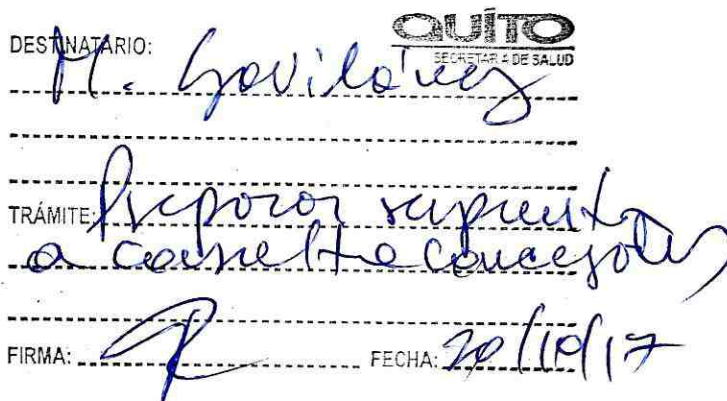 QUITO
SECRETARÍA DE SALUD
DESTINATARIO: M. Gavilánez
TRÁMITE: Preparar respuesta
a consulta Concejales
FIRMA:
FECHA: 20/10/17